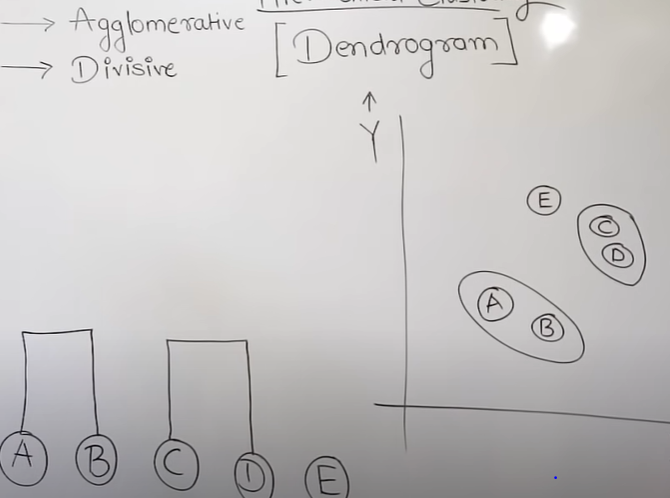 → Agglomerative
→ Divisive
[Dendrogram]
↑
Y
E
C
D
A
B
A B C D E